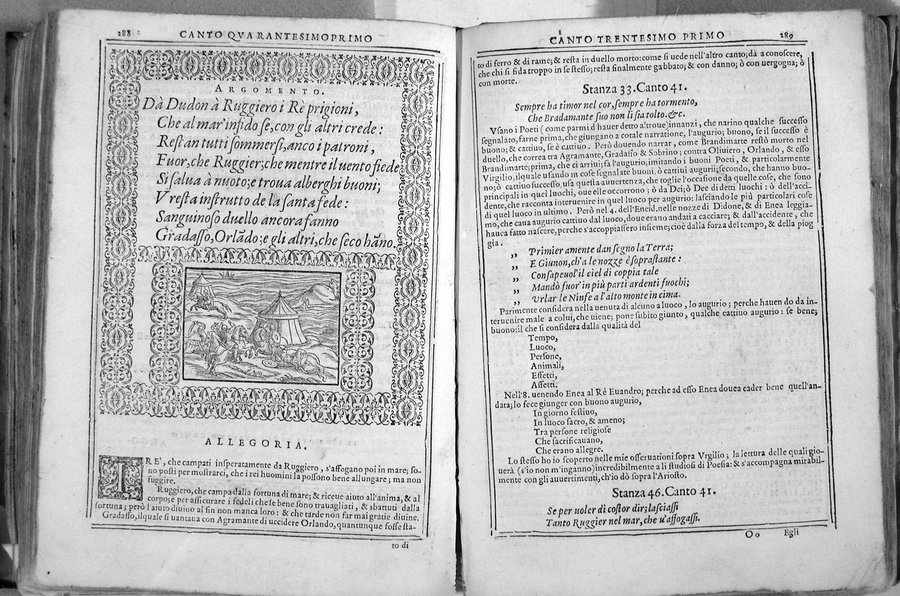 288
CANTO QVARANTESIMOPRIMO
ARGOMENTO.
Dà Dudon à Ruggiero i Rè prigioni,
Che al mar' infido se, con gli altri crede:
Restan tutti sommersi, anco i patroni,
Fuor, che Ruggier; che mentre il uento fiede
Si salua à nuoto; e troua alberghi buoni;
Vresta instrutto de la santa fede:
Sanguinoso duello ancora fanno
Gradasso, Orlãdo; e gli altri, che seco hãno.
ALLEGORIA.
I RE', che campati insperatamente da Ruggiero, s'affogano poi in mare; so-
no posti per mostrarci, che i rei huomini la possono bene allungare; ma non
fuggire.
Ruggiero, che campa dalla fortuna di mare; & riceue aiuto all'anima, & al
corpo; e per assicurare i fedeli che se bene sono trauagliati, & sbattuti dalla
fortuna; però l'aiuto diuino al fin non manca loro: & che tarde non far mai gratie diuine.
Gradasso, il quale si uantaua con Agramante di uccidere Orlando, quantunque fosse sta-
to di
CANTO TRENTESIMO PRIMO
289
to di ferro & di rame; & resta in duello morto: come si uede nell'altro canto; dà a conoscere,
che chi si fida troppo in se stesso; resta finalmente gabbato; & con danno; ò con uergogna; ò
con morte.
Stanza 33. Canto 41.
Sempre ha timor nel cor, sempre ha tormento,
Che Bradamante suo non li sia tolto. &c.
Vsano i Poeti (come parmi d'hauer detto a'troue) innanzi, che narino qualche successo
segnalato, farne prima, che giungano a cotale narratione, l'augurio; buono, se il successo è
buono; & cattiuo, se è cattiuo. Però douendo narrar, come Brandimarte restò morto nel
duello, che correa tra Agramante, Gradasso & Sobrino: contra Oliuiero, Orlando, & esso
Brandimarte; prima, che ci arriui; fà l'augurio; imitando i buoni Poeti, & particolarmente
Virgilio; il quale usando in cose segnalate buoni, ò cattiui augurij; secondo, che hanno buo-
no; ò cattiuo successo, usa questa auuertenza, che toglie l'occasione da quelle cose, che sono
principali in quei luochi, oue elle occorrono; ò da Dei; ò Dee di detti luochi: ò dell'acci-
dente, che racconta interuenire in quel luoco per augurio: lasciando le più particolari cose
di quel luoco in ultimo. Però nel 4. dell'Eneid. nelle nozze di Didone, & di Enea leggia-
mo, che caua augurio cattiuo dal luoco, doue erano andati a cacciare; & dall'accidente, che
hauea fatto nascere, perche s'accoppiassero insieme; cioè dalla forza del tempo, & della piog
gia.
„ Primieramente dan segno la Terra;
„ E Giunon, ch'a le nozze è soprastante:
„ Consapeuol' il ciel di coppia tale
„ Mandò fuor' in più parti ardenti fuochi;
„ Vrlar le Ninfe a l'alto monte in cima.
Parimente considera nella uenuta di alcuno a luoco, lo augurio; perche hauendo da in-
teruenire male a colui, che uiene; pone subito giunto, qualche cattiuo augurio: se bene;
buono: il che si considera dalla qualità del
Tempo,
Luoco,
Persone,
Animali,
Effetti,
Affetti.
Nell'8. uenendo Enea al Rè Euandro; perche ad esso Enea douea cader bene quell'an-
data; lo fece giunger con buono augurio,
In giorno festiuo,
In luoco sacro, & ameno;
Tra persone religiose
Che sacrificauano,
Che erano allegre.
Lo stesso ho io scoperto nelle mie osseruationi sopra Virgilio; la lettura delle quali gio-
uerà (s'io non m'inganno) incredibilmente a li studiosi di Poesia: & s'accompagna mirabil-
mente con gli auuertimenti, ch'io dò sopra l'Ariosto.
Stanza 46. Canto 41.
Se per uoler di costor dir; lasciassi
Tanto Ruggier nel mar, che u'affogassi.
Oo Egli